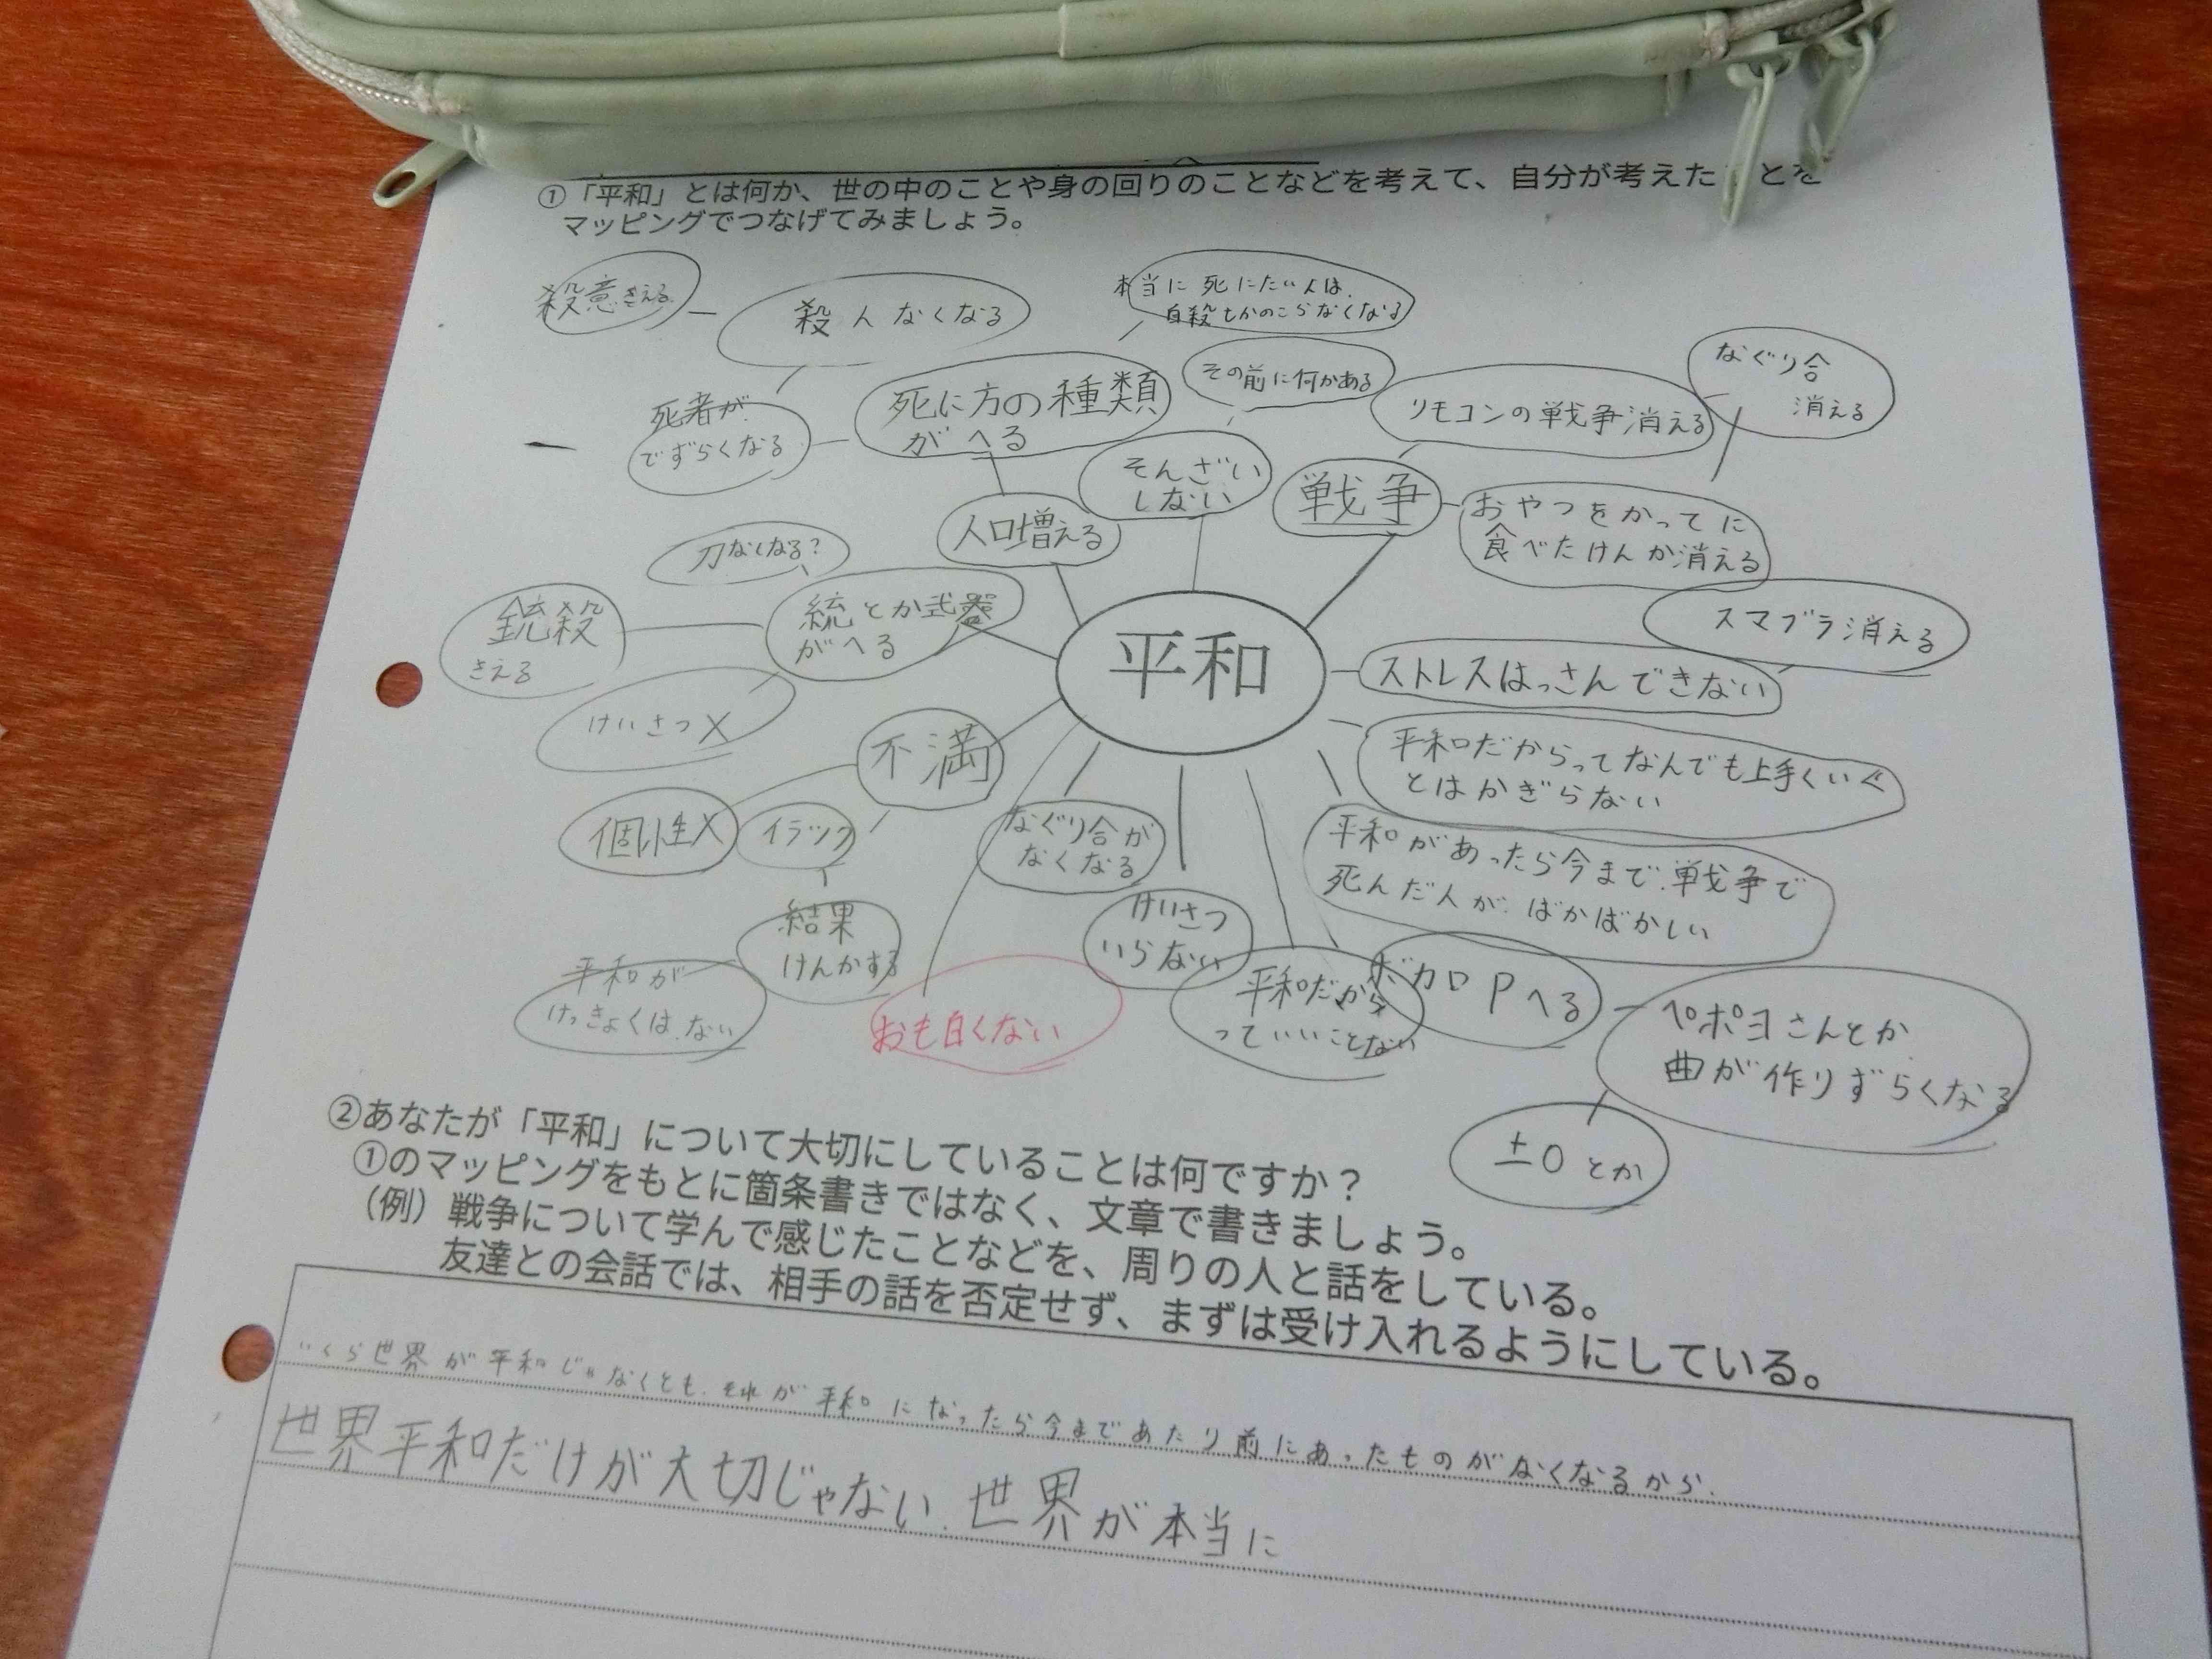 ①「平和」とは何か、世の中のことや身の回りのことなどを考えて、自分が考えた とを
マッピングでつなげてみましょう。
殺意きえる
殺人なくなる
本当に死にたい人は
自殺しかのこらなくなる
死者が
でずらくなる
死に方の種類
がへる
その前に何かある
リモコンの戦争消える
なぐり合
消える
人口増える
そんざい
しない
戦争
おやつをかってに
食べたけんか消える
刀なくなる?
銃殺
きえる
統とか武器
がへる
平和
スマブラ消える
ストレスはっさんできない
けいさつ✕
不満
平和だからってなんでも上手くいく
とはかぎらない
個性✕
イラック
なぐり合が
なくなる
平和があったら今まで戦争で
死んだ人がばかばかしい
結果
けんかする
けいさつ
いらない
平和が
けっきょくはない
おも白くない
平和だから
っていいことない
ボカロPへる
ペポヨさんとか
曲が作りずらくなる
±0とか
②あなたが「平和」について大切にしていることは何ですか?
①のマッピングをもとに箇条書きではなく、文章で書きましょう。
(例)戦争について学んで感じたことなどを、周りの人と話をしている。
友達との会話では、相手の話を否定せず、まずは受け入れるようにしている。
いくら世界が平和じゃなくとも、それが平和になったら今まであたり前にあったものがなくなるから.
世界平和だけが大切じゃない.世界が本当に